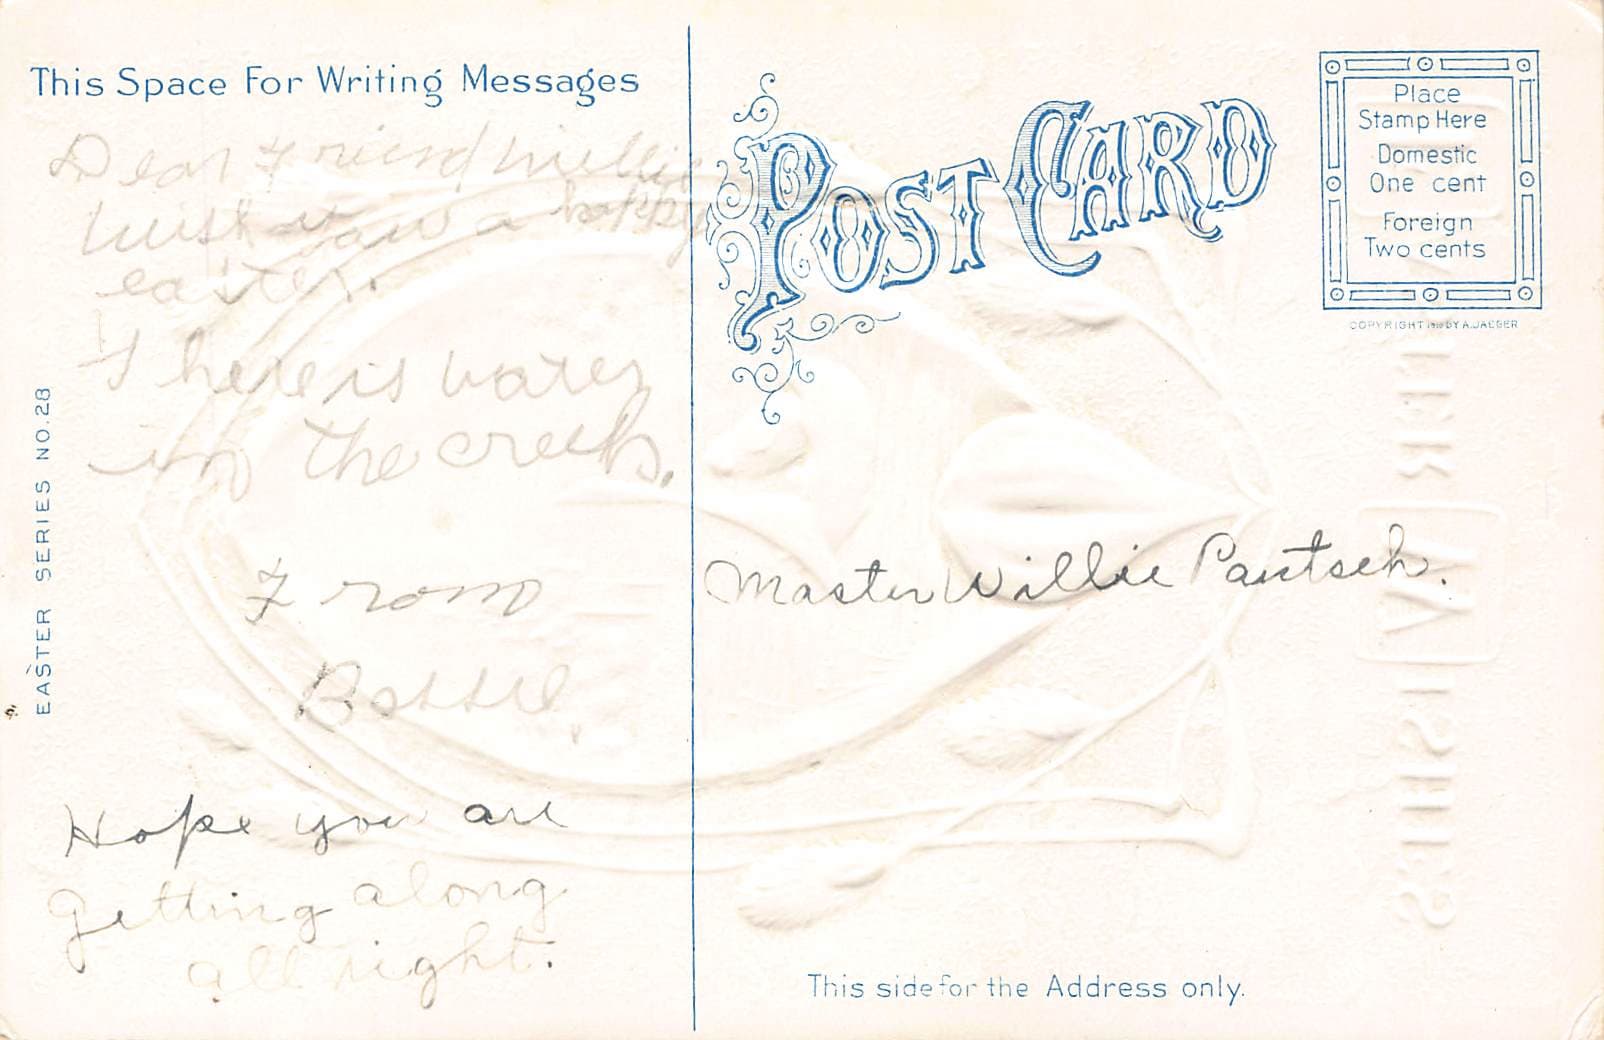 This Space For Writing Messages
Dear Friend Willie
wish you a happy
easter.
There is water
in the creek.
From
Hope you are
getting along
all right.
EASTER SERIES NO. 28
POST CARD
Place
Stamp Here
Domestic
One cent
Foreign
Two cents
COPYRIGHT 1910 BY A. JAEGER
Master Willie Pautsch.
This side for the Address only.